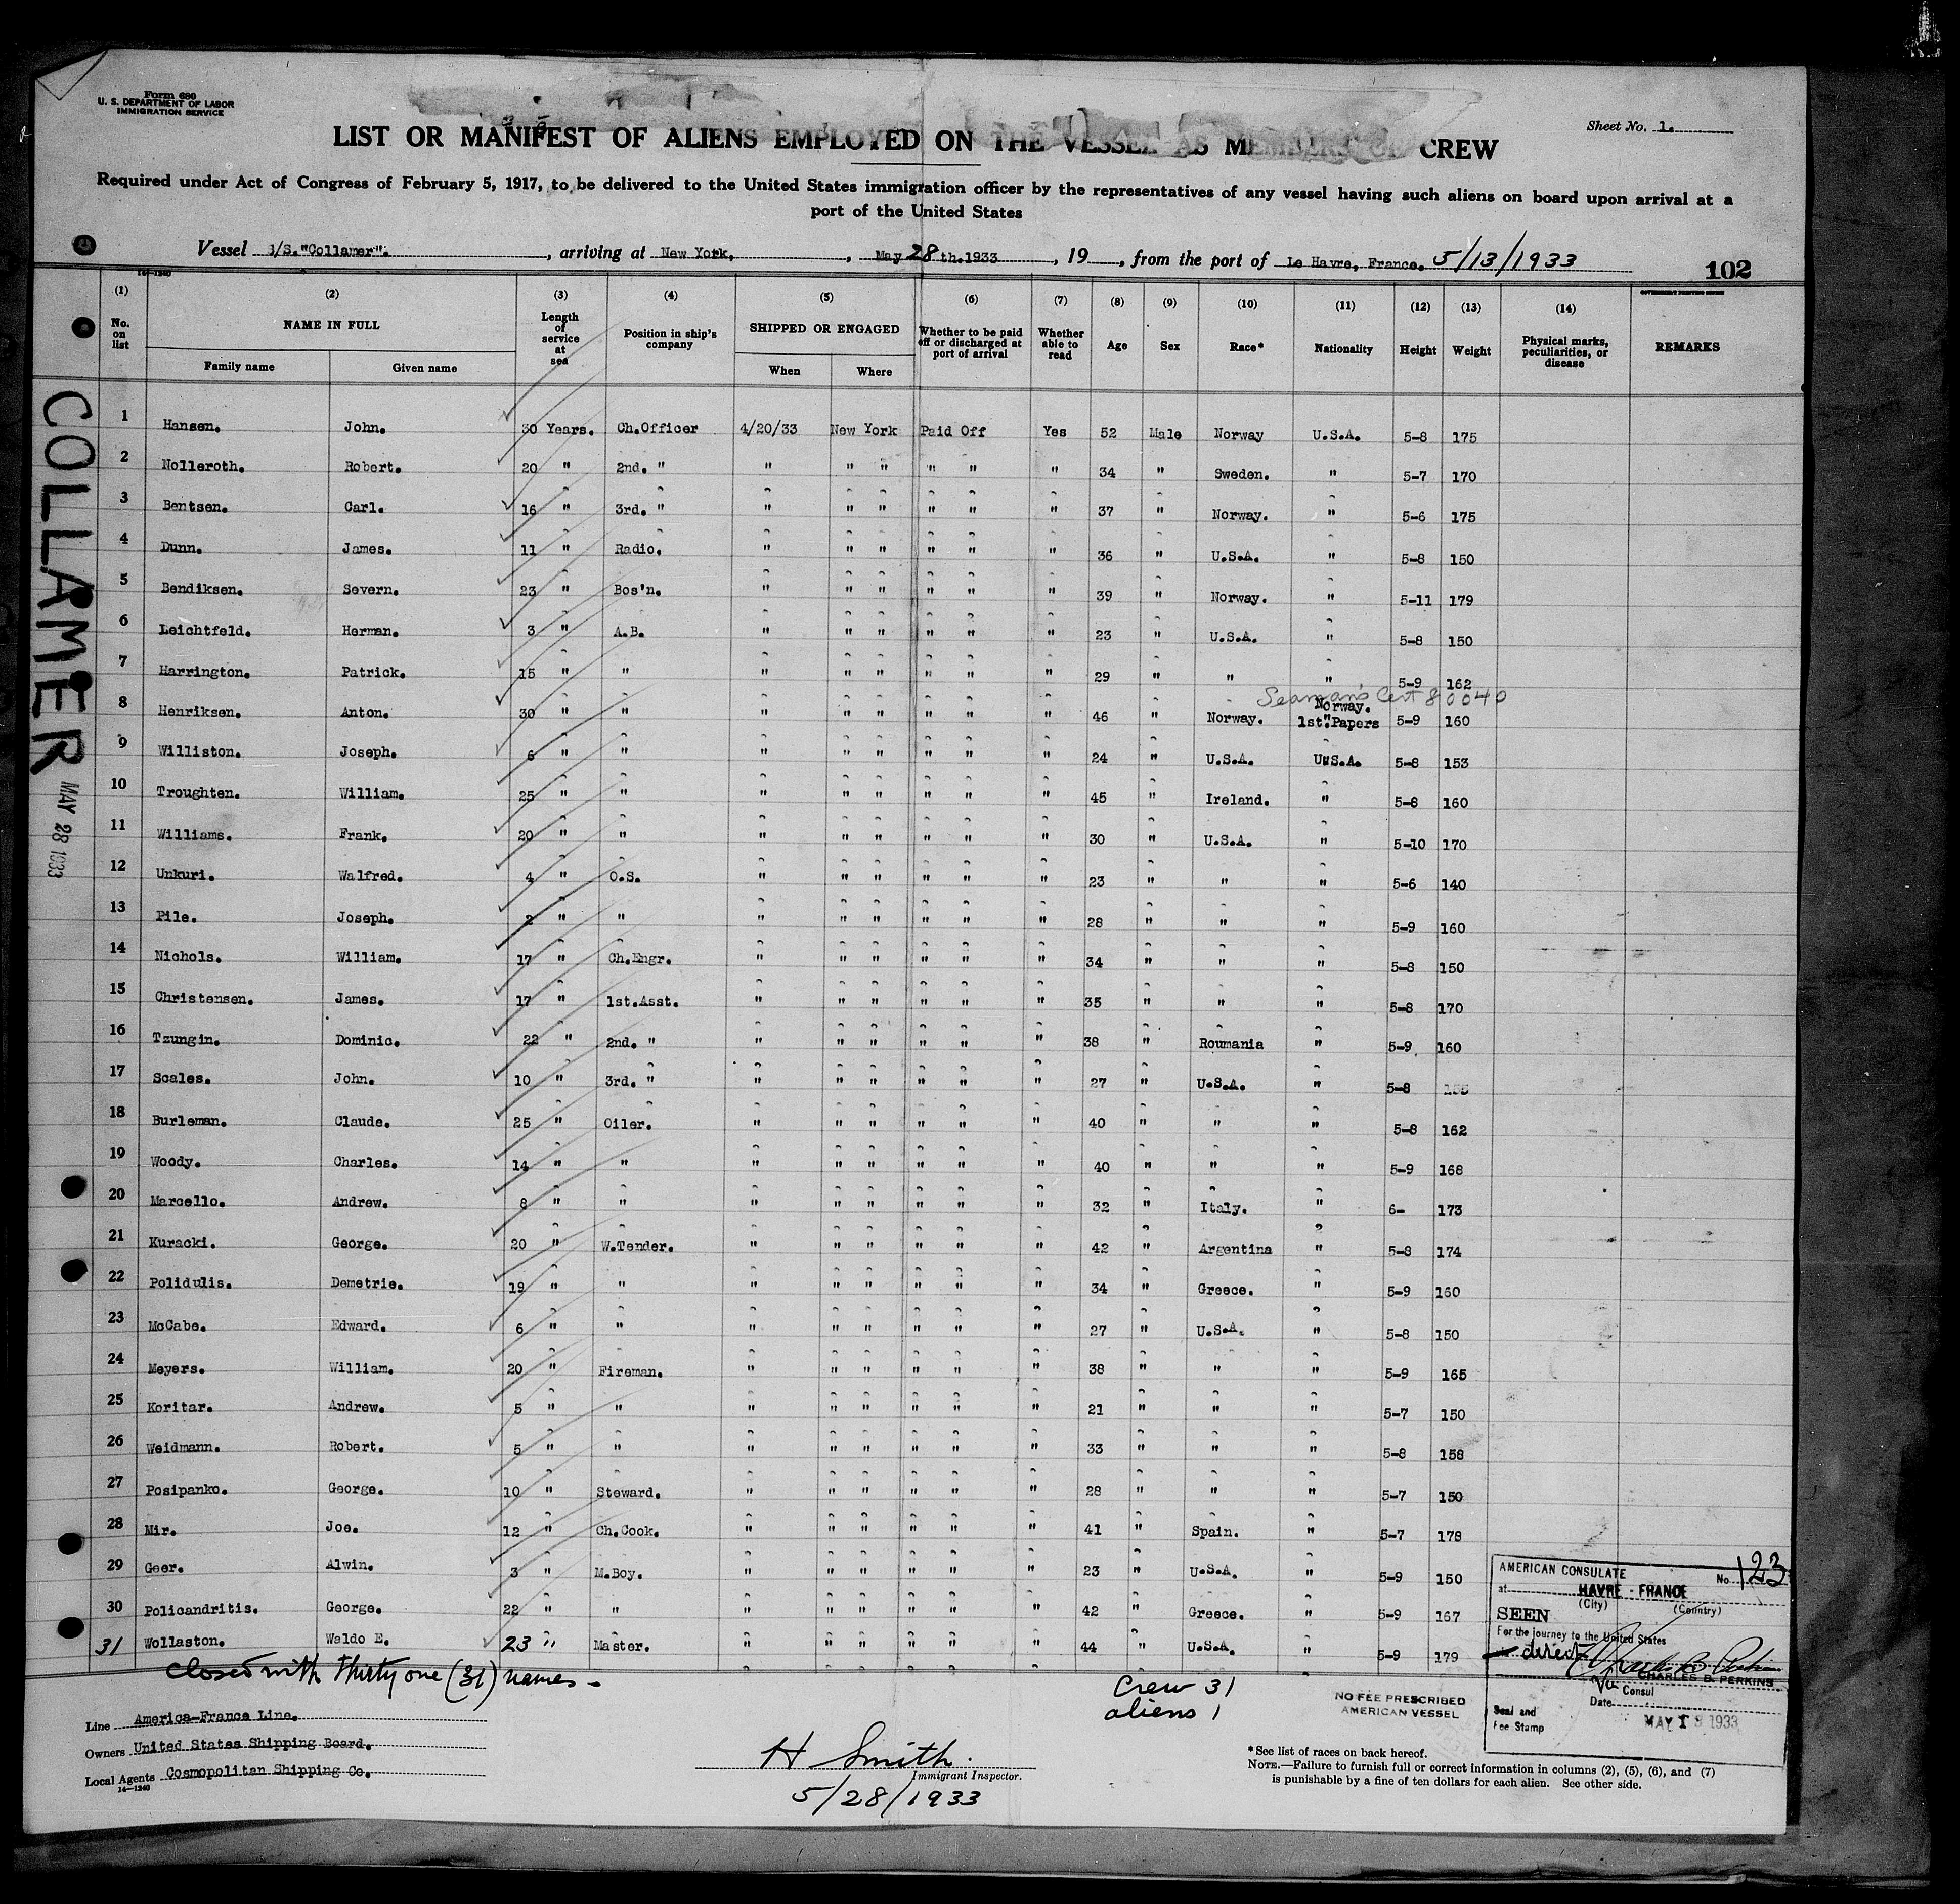 Form 680
U. S. DEPARTMENT OF LABOR
IMMIGRATION SERVICE
Sheet No. 1.
LIST OR MANIFEST OF ALIENS EMPLOYED ON THE VESSEL AS MEMBERS OF CREW
Required under Act of Congress of February 5, 1917, to be delivered to the United States immigration officer by the representatives of any vessel having such aliens on board upon arrival at a
port of the United States
Vessel S/S."Collamer". , arriving at New York, , May 28th.1933 , 19 , from the port of Le Havre, France. 5/13/1933
14—1240
102
GOVERNMENT PRINTING OFFICE
(1) (2) (3) (4) (5) (6) (7) (8) (9) (10) (11) (12) (13) (14)
No. on list NAME IN FULL Family name Given name Length of service at sea Position in ship's company SHIPPED OR ENGAGED When Where Whether to be paid off or discharged at port of arrival Whether able to read Age Sex Race* Nationality Height Weight Physical marks, peculiarities, or disease REMARKS
1 Hansen. John. 30 Years. Ch.Officer 4/20/33 New York Paid Off Yes 52 Male Norway U.S.A. 5-8 175
2 Nolleroth. Robert. 20 " 2nd. " " " " " " " 34 " Sweden. " 5-7 170
3 Bentsen. Carl. 16 " 3rd. " " " " " " " 37 " Norway. " 5-6 175
4 Dunn. James. 11 " Radio. " " " " " " 36 " U.S.A. " 5-8 150
5 Bendiksen. Severn. 23 " Bos'n. " " " " " " 39 " Norway. " 5-11 179
6 Leichtfeld. Herman. 3 " A.B. " " " " " " 23 " U.S.A. " 5-8 150
7 Harrington. Patrick. 15 " " " " " " " " 29 " " " 5-9 162
Seaman's Cert 80040
8 Henriksen. Anton. 30 " " " " " " " " 46 " Norway. Norway. 1st. Papers 5-9 160
9 Williston. Joseph. 6 " " " " " " " " 24 " U.S.A. U.S.A. 5-8 153
10 Troughten. William. 25 " " " " " " " " 45 " Ireland. " 5-8 160
11 Williams. Frank. 20 " " " " " " " " 30 " U.S.A. " 5-10 170
12 Unkuri. Walfred. 4 " O.S. " " " " " " 23 " " " 5-6 140
13 Pile. Joseph. 2 " " " " " " " " 28 " " " 5-9 160
14 Nichols. William. 17 " Ch.Engr. " " " " " " 34 " " " 5-8 150
15 Christensen. James. 17 " 1st.Asst. " " " " " " 35 " " " 5-8 170
16 Tzungin. Dominic. 22 " 2nd. " " " " " " " 38 " Roumania " 5-9 160
17 Scales. John. 10 " 3rd. " " " " " " " 27 " U.S.A. " 5-8
18 Burleman. Claude. 25 " Oiler. " " " " " " 40 " " " 5-8 162
19 Woody. Charles. 14 " " " " " " " " 40 " " " 5-9 168
20 Marcello. Andrew. 8 " " " " " " " " 32 " Italy. " 6- 173
21 Kuracki. George. 20 " W.Tender. " " " " " " 42 " Argentina " 5-8 174
22 Polidulis. Demetrie. 19 " " " " " " " " 34 " Greece. " 5-9 160
23 McCabe. Edward. 6 " " " " " " " " 27 " U.S.A. " 5-8 150
24 Meyers. William. 20 " Fireman. " " " " " " 38 " " " 5-9 165
25 Koritar. Andrew. 5 " " " " " " " " 21 " " " 5-7 150
26 Weidmann. Robert. 5 " " " " " " " " 33 " " " 5-8 158
27 Posipanko. George. 10 " Steward. " " " " " " 28 " " " 5-7 150
28 Mir. Joe. 12 " Ch.Cook. " " " " " " 41 " Spain. " 5-7 178
29 Geer. Alwin. 3 " M.Boy. " " " " " " 23 " U.S.A. " 5-9 150
30 Policandritis. George. 22 " " " " " " " " 42 " Greece. " 5-9 167
31 Wollaston. Waldo E. 23 " Master. " " " " " " 44 " U.S.A. " 5-9 179
closed with thirty one (31) names -
COLLAMER
MAY 28 1933
Crew 31
aliens 1
NO FEE PRESCRIBED
AMERICAN VESSEL
AMERICAN CONSULATE
No. 123
at HAVRE - FRANCE
(City) (Country)
SEEN
For the journey to the United States
direct
CHARLES B. PERKINS
Vice Consul
Date
MAY 13 1933
Seal and
Fee Stamp
Line America-France Line.
Owners United States Shipping Board.
Local Agents Cosmopolitan Shipping Co.
14—1240
H Smith.
Immigrant Inspector.
5/28/1933
*See list of races on back hereof.
NOTE.—Failure to furnish full or correct information in columns (2), (5), (6), and (7)
is punishable by a fine of ten dollars for each alien. See other side.